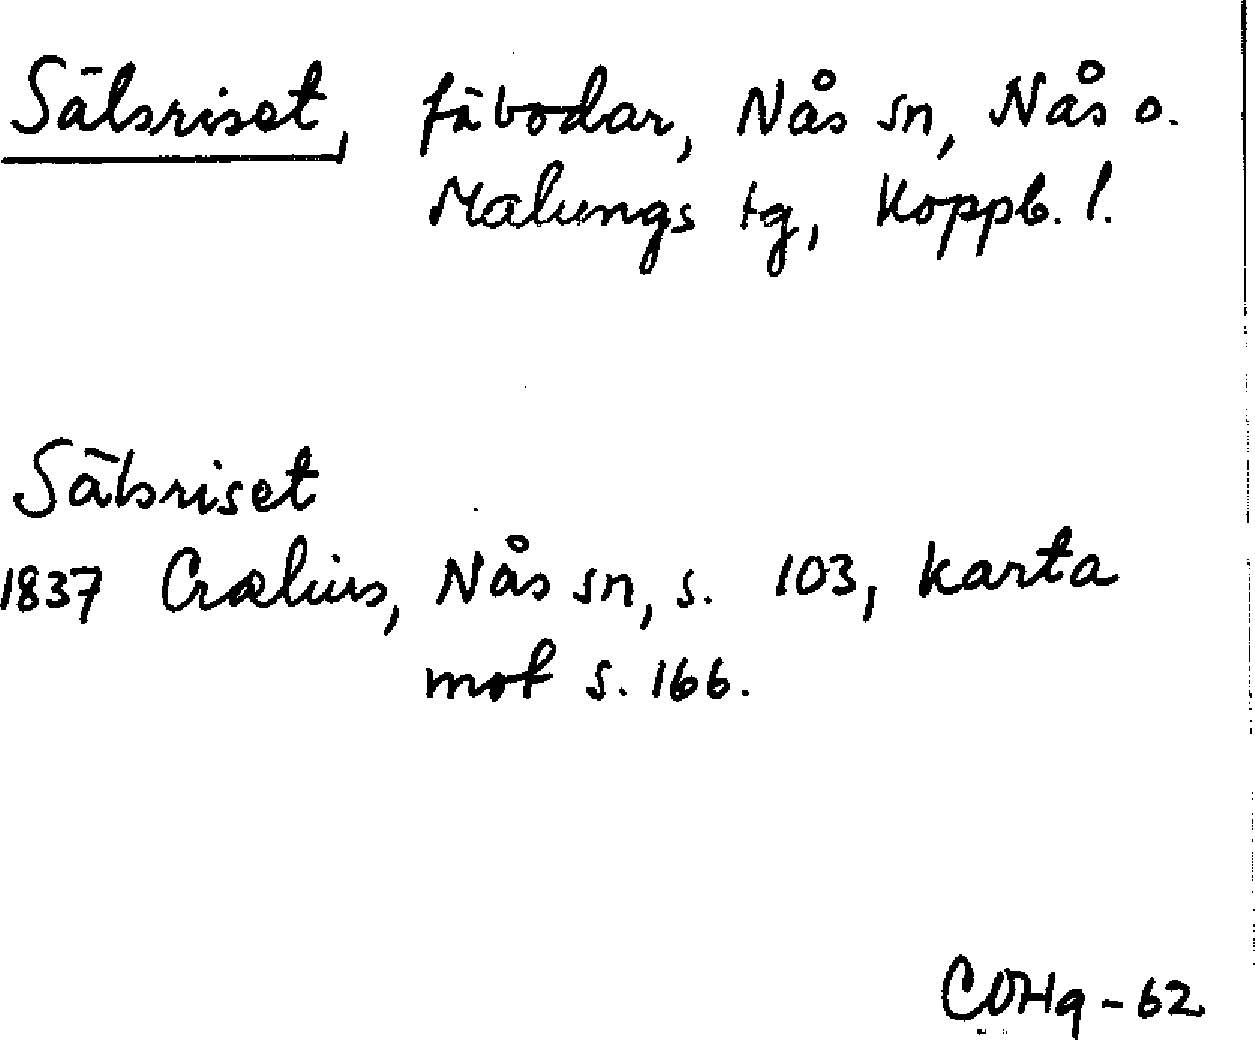 Sälsriset, fäbodar, Nås sn, Nås o.
Malungs tg, Koppb. l.
Sälsriset
1837 Crælius, Nås sn, s. 103, karta
mot s. 166.
COHg-62